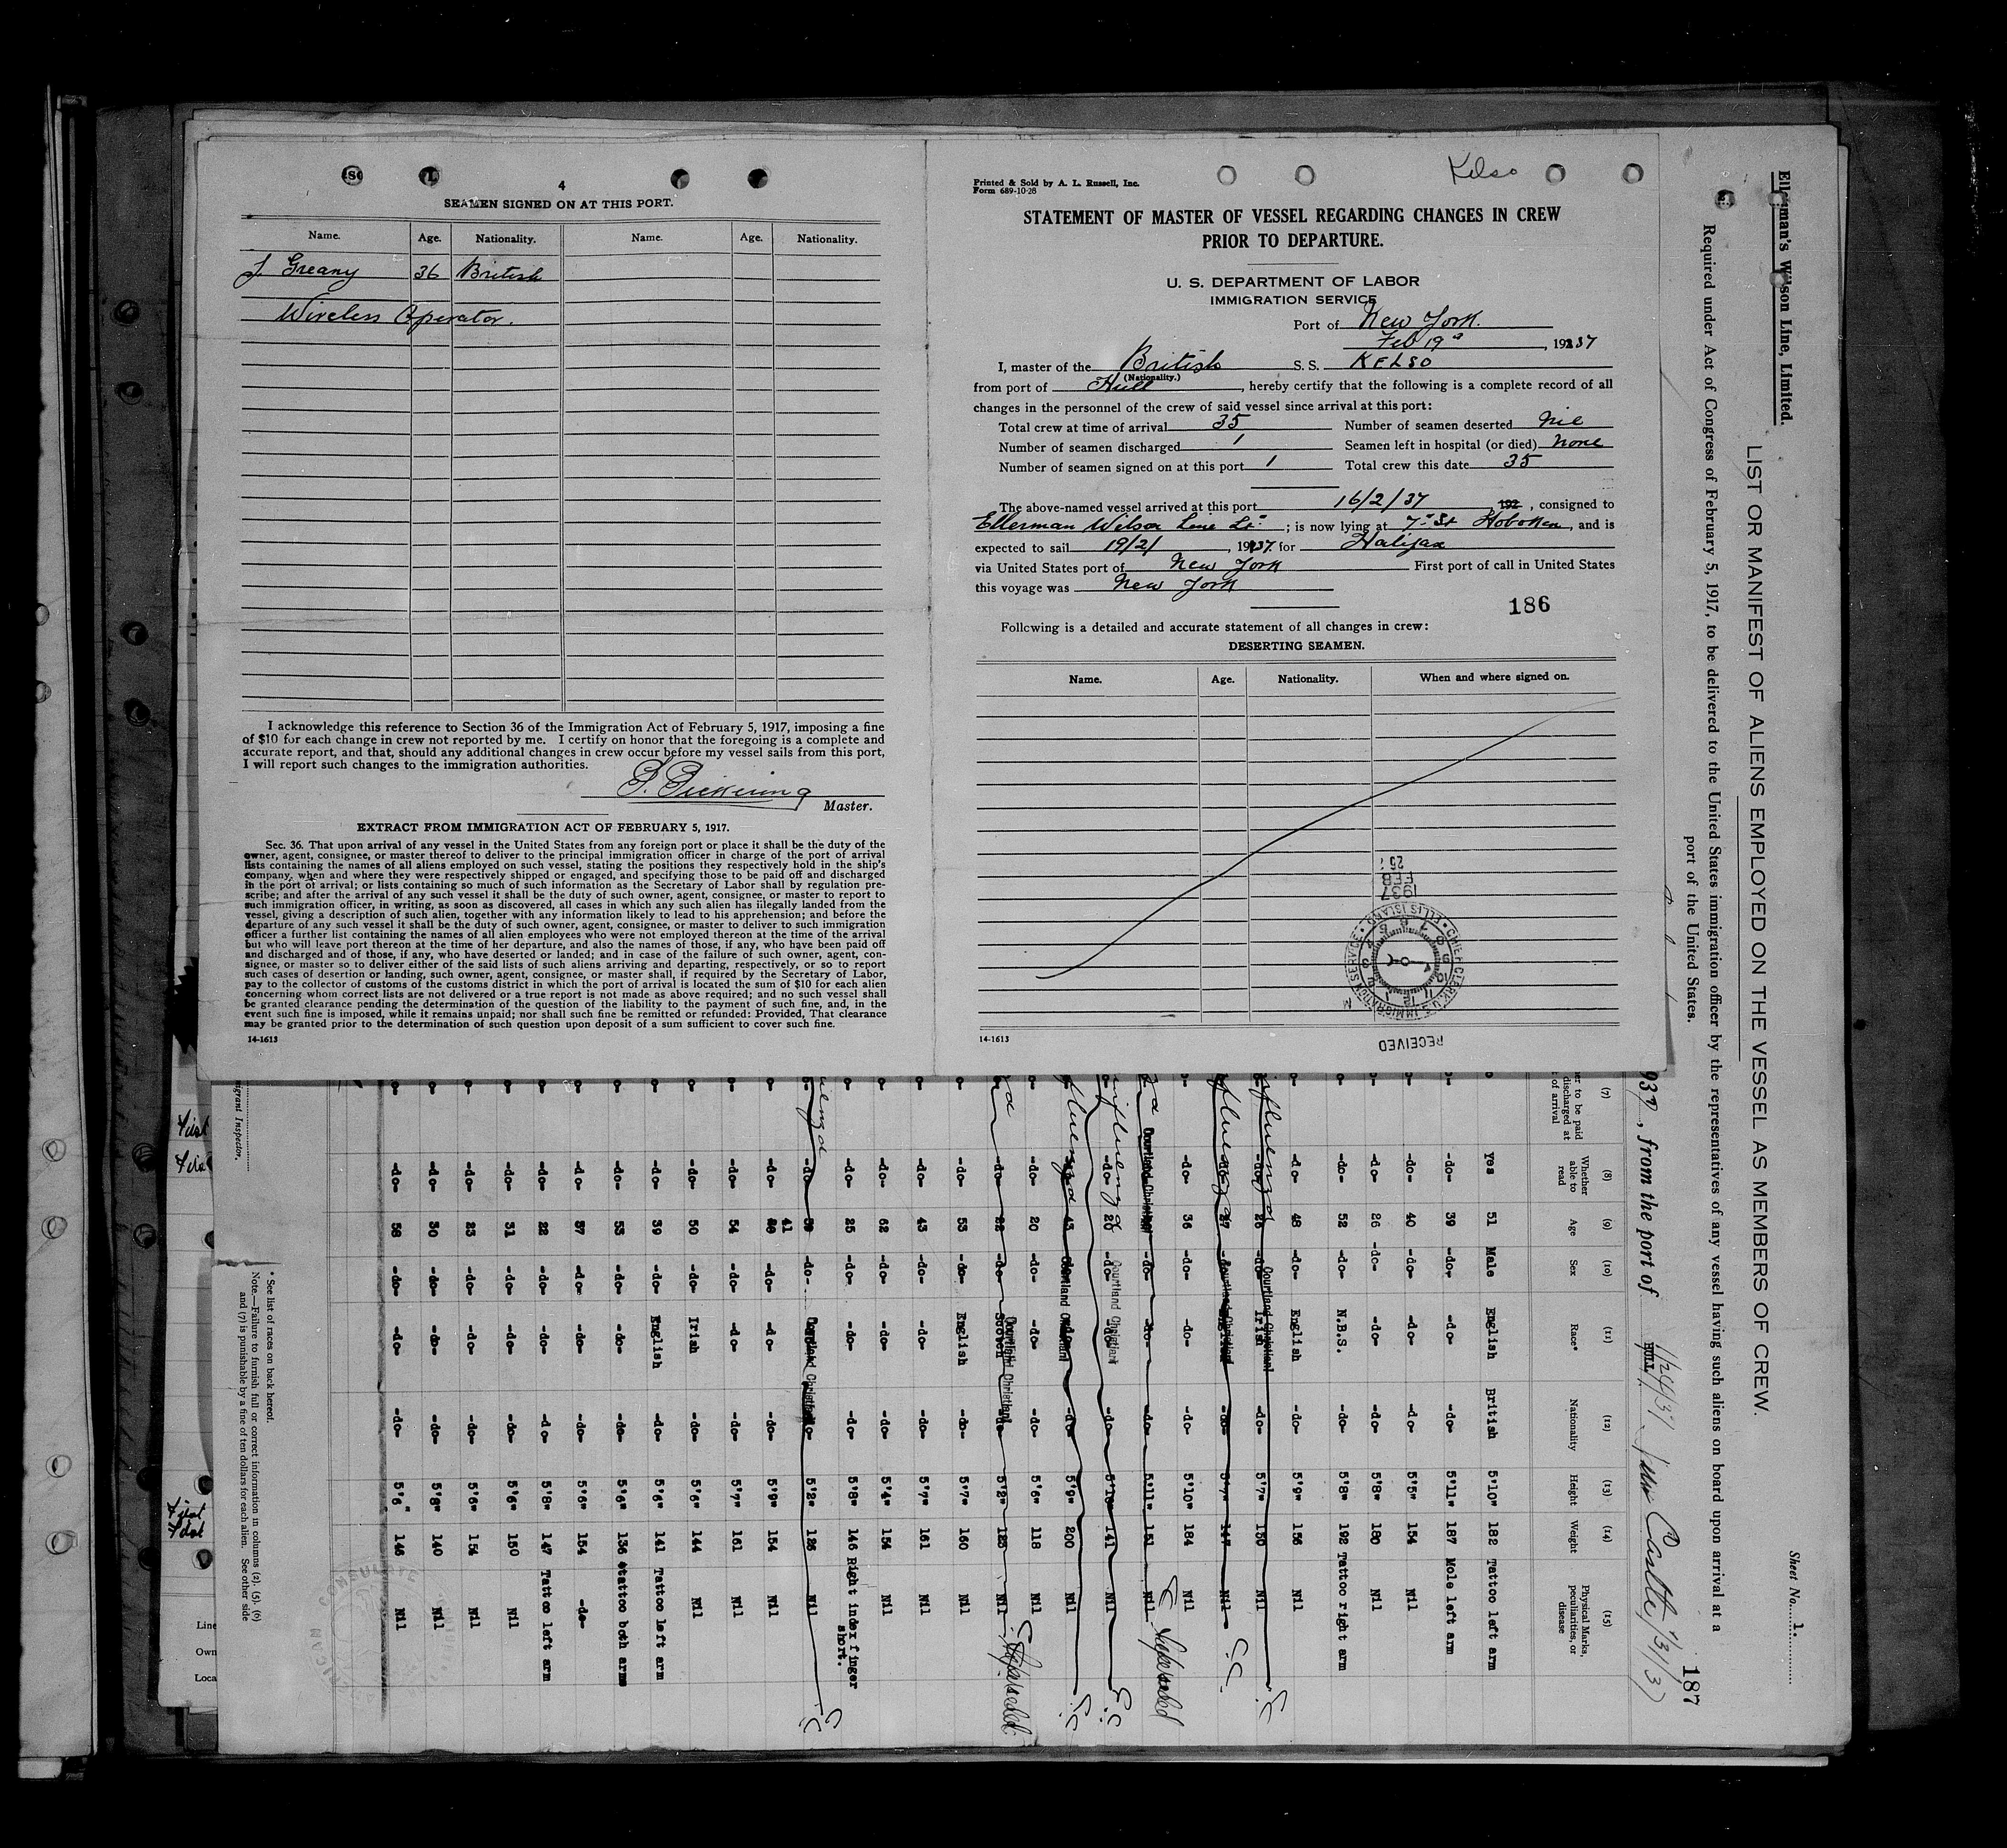 4
SEAMEN SIGNED ON AT THIS PORT.
Name. Age. Nationality. Name. Age. Nationality.
J. Greany 36 British
Wireless Operator.
I acknowledge this reference to Section 36 of the Immigration Act of February 5, 1917, imposing a fine
of $10 for each change in crew not reported by me. I certify on honor that the foregoing is a complete and
accurate report, and that, should any additional changes in crew occur before my vessel sails from this port,
I will report such changes to the immigration authorities.
P. Pickering
Master.
EXTRACT FROM IMMIGRATION ACT OF FEBRUARY 5, 1917.
Sec. 36. That upon arrival of any vessel in the United States from any foreign port or place it shall be the duty of the
owner, agent, consignee, or master thereof to deliver to the principal immigration officer in charge of the port of arrival
lists containing the names of all aliens employed on such vessel, stating the positions they respectively hold in the ship's
company, when and where they were respectively shipped or engaged, and specifying those to be paid off and discharged
in the port of arrival; or lists containing so much of such information as the Secretary of Labor shall by regulation pre-
scribe; and after the arrival of any such vessel it shall be the duty of such owner, agent, consignee, or master to report to
such immigration officer, in writing, as soon as discovered, all cases in which any such alien has illegally landed from the
vessel, giving a description of such alien, together with any information likely to lead to his apprehension; and before the
departure of any such vessel it shall be the duty of such owner, agent, consignee, or master to deliver to such immigration
officer a further list containing the names of all alien employees who were not employed thereon at the time of the arrival
but who will leave port thereon at the time of her departure, and also the names of those, if any, who have been paid off
and discharged and of those, if any, who have deserted or landed; and in case of the failure of such owner, agent, con-
signee, or master so to deliver either of the said lists of such aliens arriving and departing, respectively, or so to report
such cases of desertion or landing, such owner, agent, consignee, or master shall, if required by the Secretary of Labor,
pay to the collector of customs of the customs district in which the port of arrival is located the sum of $10 for each alien
concerning whom correct lists are not delivered or a true report is not made as above required; and no such vessel shall
be granted clearance pending the determination of the question of the liability to the payment of such fine, and, in the
event such fine is imposed, while it remains unpaid; nor shall such fine be remitted or refunded: Provided, That clearance
may be granted prior to the determination of such question upon deposit of a sum sufficient to cover such fine.
14-1613
Printed & Sold by A. L. Russell, Inc.
Form 689-10-28
Kelso
STATEMENT OF MASTER OF VESSEL REGARDING CHANGES IN CREW
PRIOR TO DEPARTURE.
U. S. DEPARTMENT OF LABOR
IMMIGRATION SERVICE
Port of New York.
Feb 19, 1937
I, master of the British S. S. KELSO
(Nationality.)
from port of Hull, hereby certify that the following is a complete record of all
changes in the personnel of the crew of said vessel since arrival at this port:
Total crew at time of arrival 35 Number of seamen deserted Nil
Number of seamen discharged 1 Seamen left in hospital (or died) None
Number of seamen signed on at this port 1 Total crew this date 35
The above-named vessel arrived at this port 16/2/37 192 , consigned to
Ellerman Wilson Line Ld ; is now lying at 7th St Hoboken, and is
expected to sail 19/2/, 1937 for Halifax
via United States port of New York First port of call in United States
this voyage was New York
186
Following is a detailed and accurate statement of all changes in crew:
DESERTING SEAMEN.
Name. Age. Nationality. When and where signed on.
1937
FEB
25
CHIEF CLERK U.S. IMMIGRATION SERVICE ELLIS ISLAND
RECEIVED
14-1613
Ellerman's Wilson Line, Limited.
Sheet No. 1.
LIST OR MANIFEST OF ALIENS EMPLOYED ON THE VESSEL AS MEMBERS OF CREW.
Required under Act of Congress of February 5, 1917, to be delivered to the United States immigration officer by the representatives of any vessel having such aliens on board upon arrival at a
port of the United States.
187
937, from the port of HULL
(7) (8) (9) (10) (11) (12) (13) (14) (15)
er to be paid discharged at of arrival
Whether able to read
Age
Sex
Race*
Nationality
Height
Weight
Physical Marks, peculiarities, or disease
Yes 51 Male English British 5'10" 182 Tattoo left arm
-do- 39 -do- -do- -do- 5'11" 187 Mole left arm
-do- 40 -do- -do- -do- 5'5" 154 Nil
-do- 26 -do- -do- -do- 5'8" 180 Nil
-do- 52 -do- N.B.S. -do- 5'8" 192 Tattoo right arm
-do- 48 -do- English -do- 5'9" 156 Nil
-do- 26 -do- Irish -do- 5'7" 150 Nil
27 English -do- 5'7" 147 Nil
-do- 36 -do- -do- -do- 5'10" 184 Nil
-do- -do- -do- 5'11" 151 Nil
-do- 20 -do- -do- -do- 5'10" 141 Nil
43 -do- 5'9" 200 Nil
-do- 20 -do- -do- -do- 5'6" 118 Nil
-do- 22 -do- Scotch -do- 5'2" 125 Nil
-do- 53 -do- English -do- 5'7" 160 Nil
-do- 43 -do- -do- -do- 5'7" 161 Nil
-do- 62 -do- -do- -do- 5'4" 154 Nil
-do- 25 -do- -do- -do- 5'8" 146 Right index finger short.
-do- -do- -do- 5'2" 126 Nil
-do- 41 -do- -do- -do- 5'9" 154 Nil
-do- 54 -do- -do- -do- 5'7" 161 Nil
-do- 50 -do- Irish -do- 5'6" 144 Nil
-do- 39 -do- English -do- 5'6" 141 Tattoo left arm
-do- 53 -do- -do- -do- 5'6" 136 tattoo both arms
-do- 37 -do- -do- -do- 5'6" 154 -do-
-do- 22 -do- -do- -do- 5'8" 147 Tattoo left arm
-do- 31 -do- -do- -do- 5'6" 150 Nil
-do- 23 -do- -do- -do- 5'6" 154 Nil
-do- 30 -do- -do- -do- 5'8" 140 Nil
-do- 58 -do- -do- -do- 5'6" 146 Nil
* See list of races on back hereof.
Note.—Failure to furnish full or correct information in columns (2), (5), (6)
and (7) is punishable by a fine of ten dollars for each alien. See other side
migrant Inspector.
Line
Own
Loca